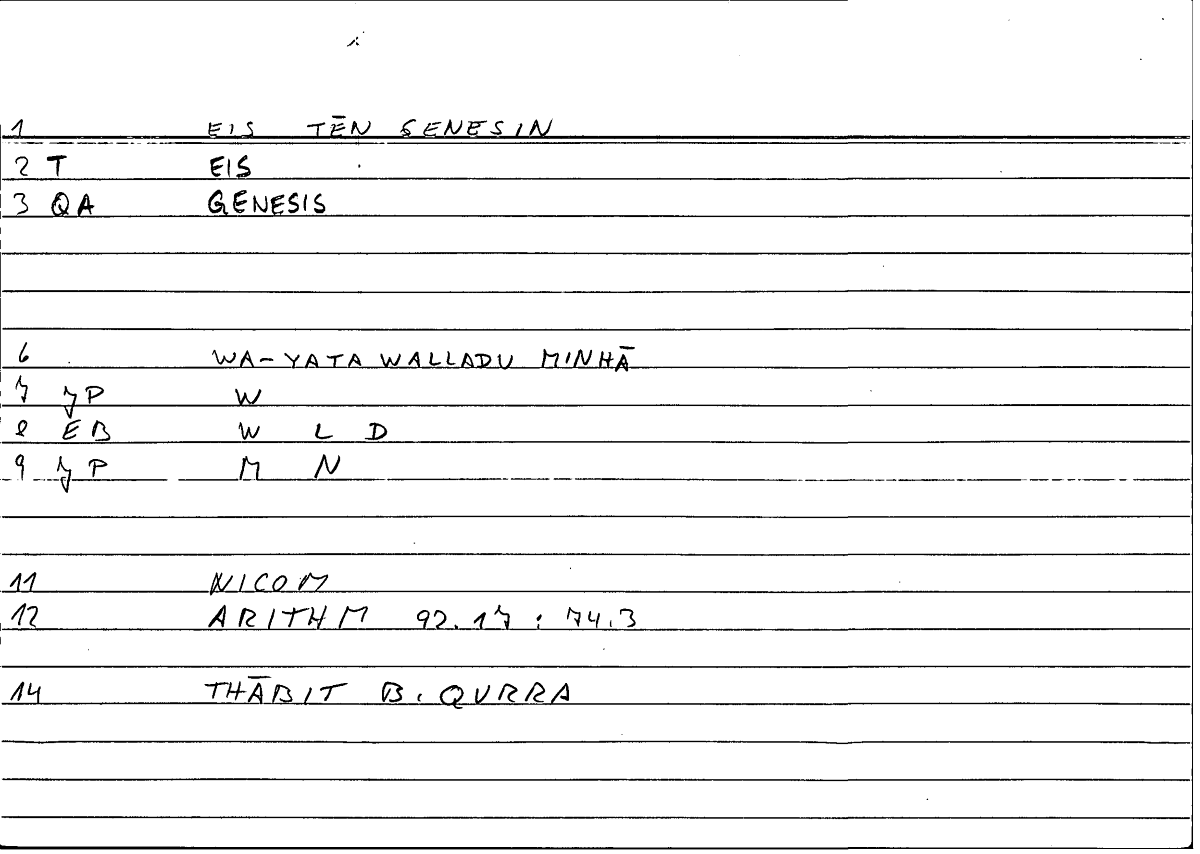 1 EIS TĒN GENESIN
2 T EIS
3 QA GENESIS
6 WA-YATAWALLADU MINHĀ
7 JP W
8 EB W L D
9 JP M N
11 NICOM
12 ARITHM 92.17 : 74.3
14 THĀBIT B. QURRA